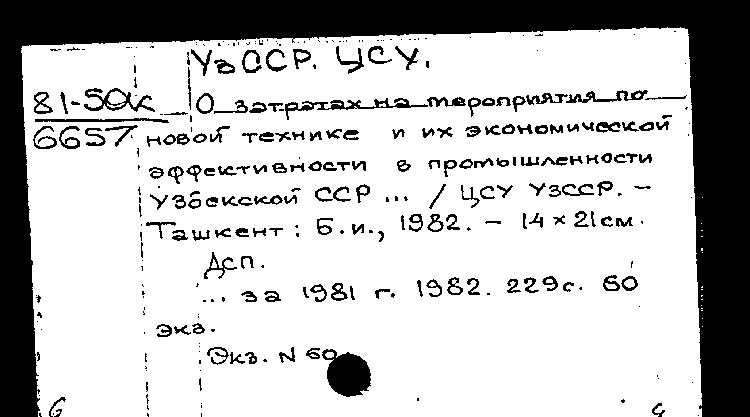 УзССР. ЦСУ.
81-50к
6657
О затратах на мероприятия по
новой технике и их экономической
эффективности в промышленности
Узбекской ССР ... / ЦСУ УзССР. –
Ташкент : Б.и., 1982. – 14×21см.
Дсп.
... за 1981 г. 1982. 229с. 60
экз.
Экз. N 60